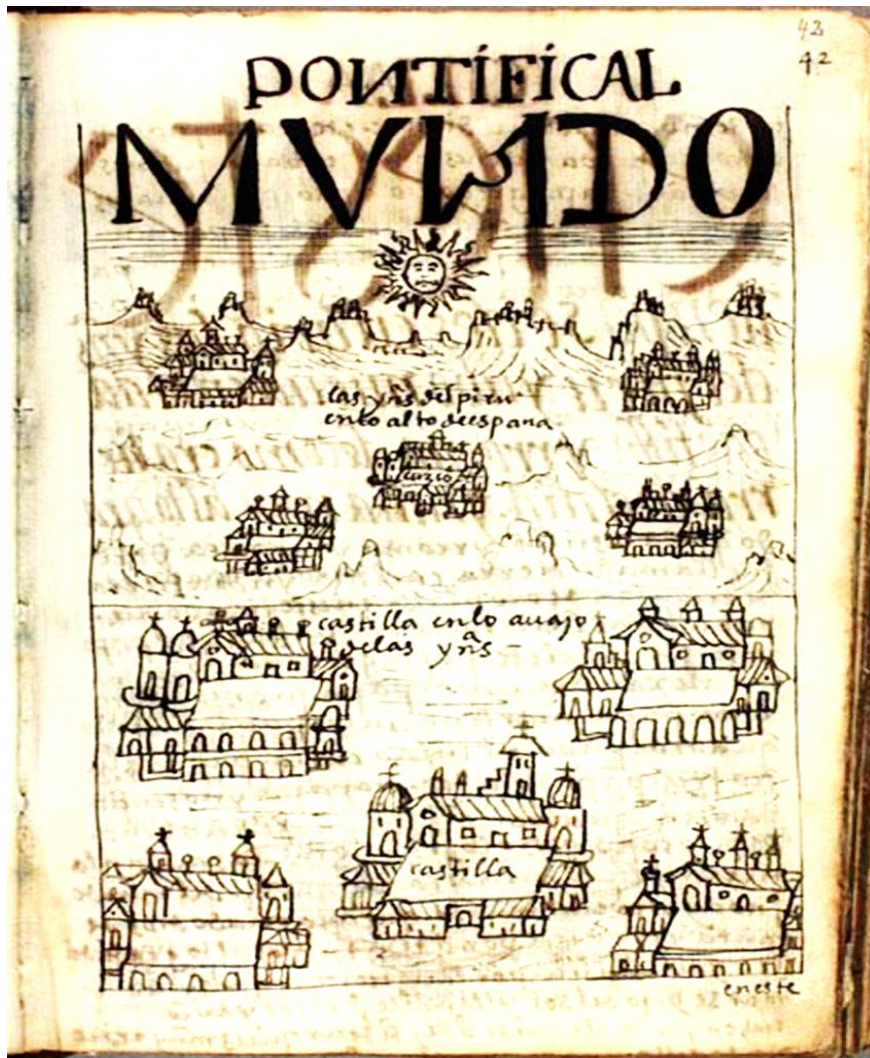 42
42
PONTÍFÍCAL
MVNDO
las yñs del piru
en lo alto de españa
cuzco
castilla en lo auajo
de las yñas
castilla
en este